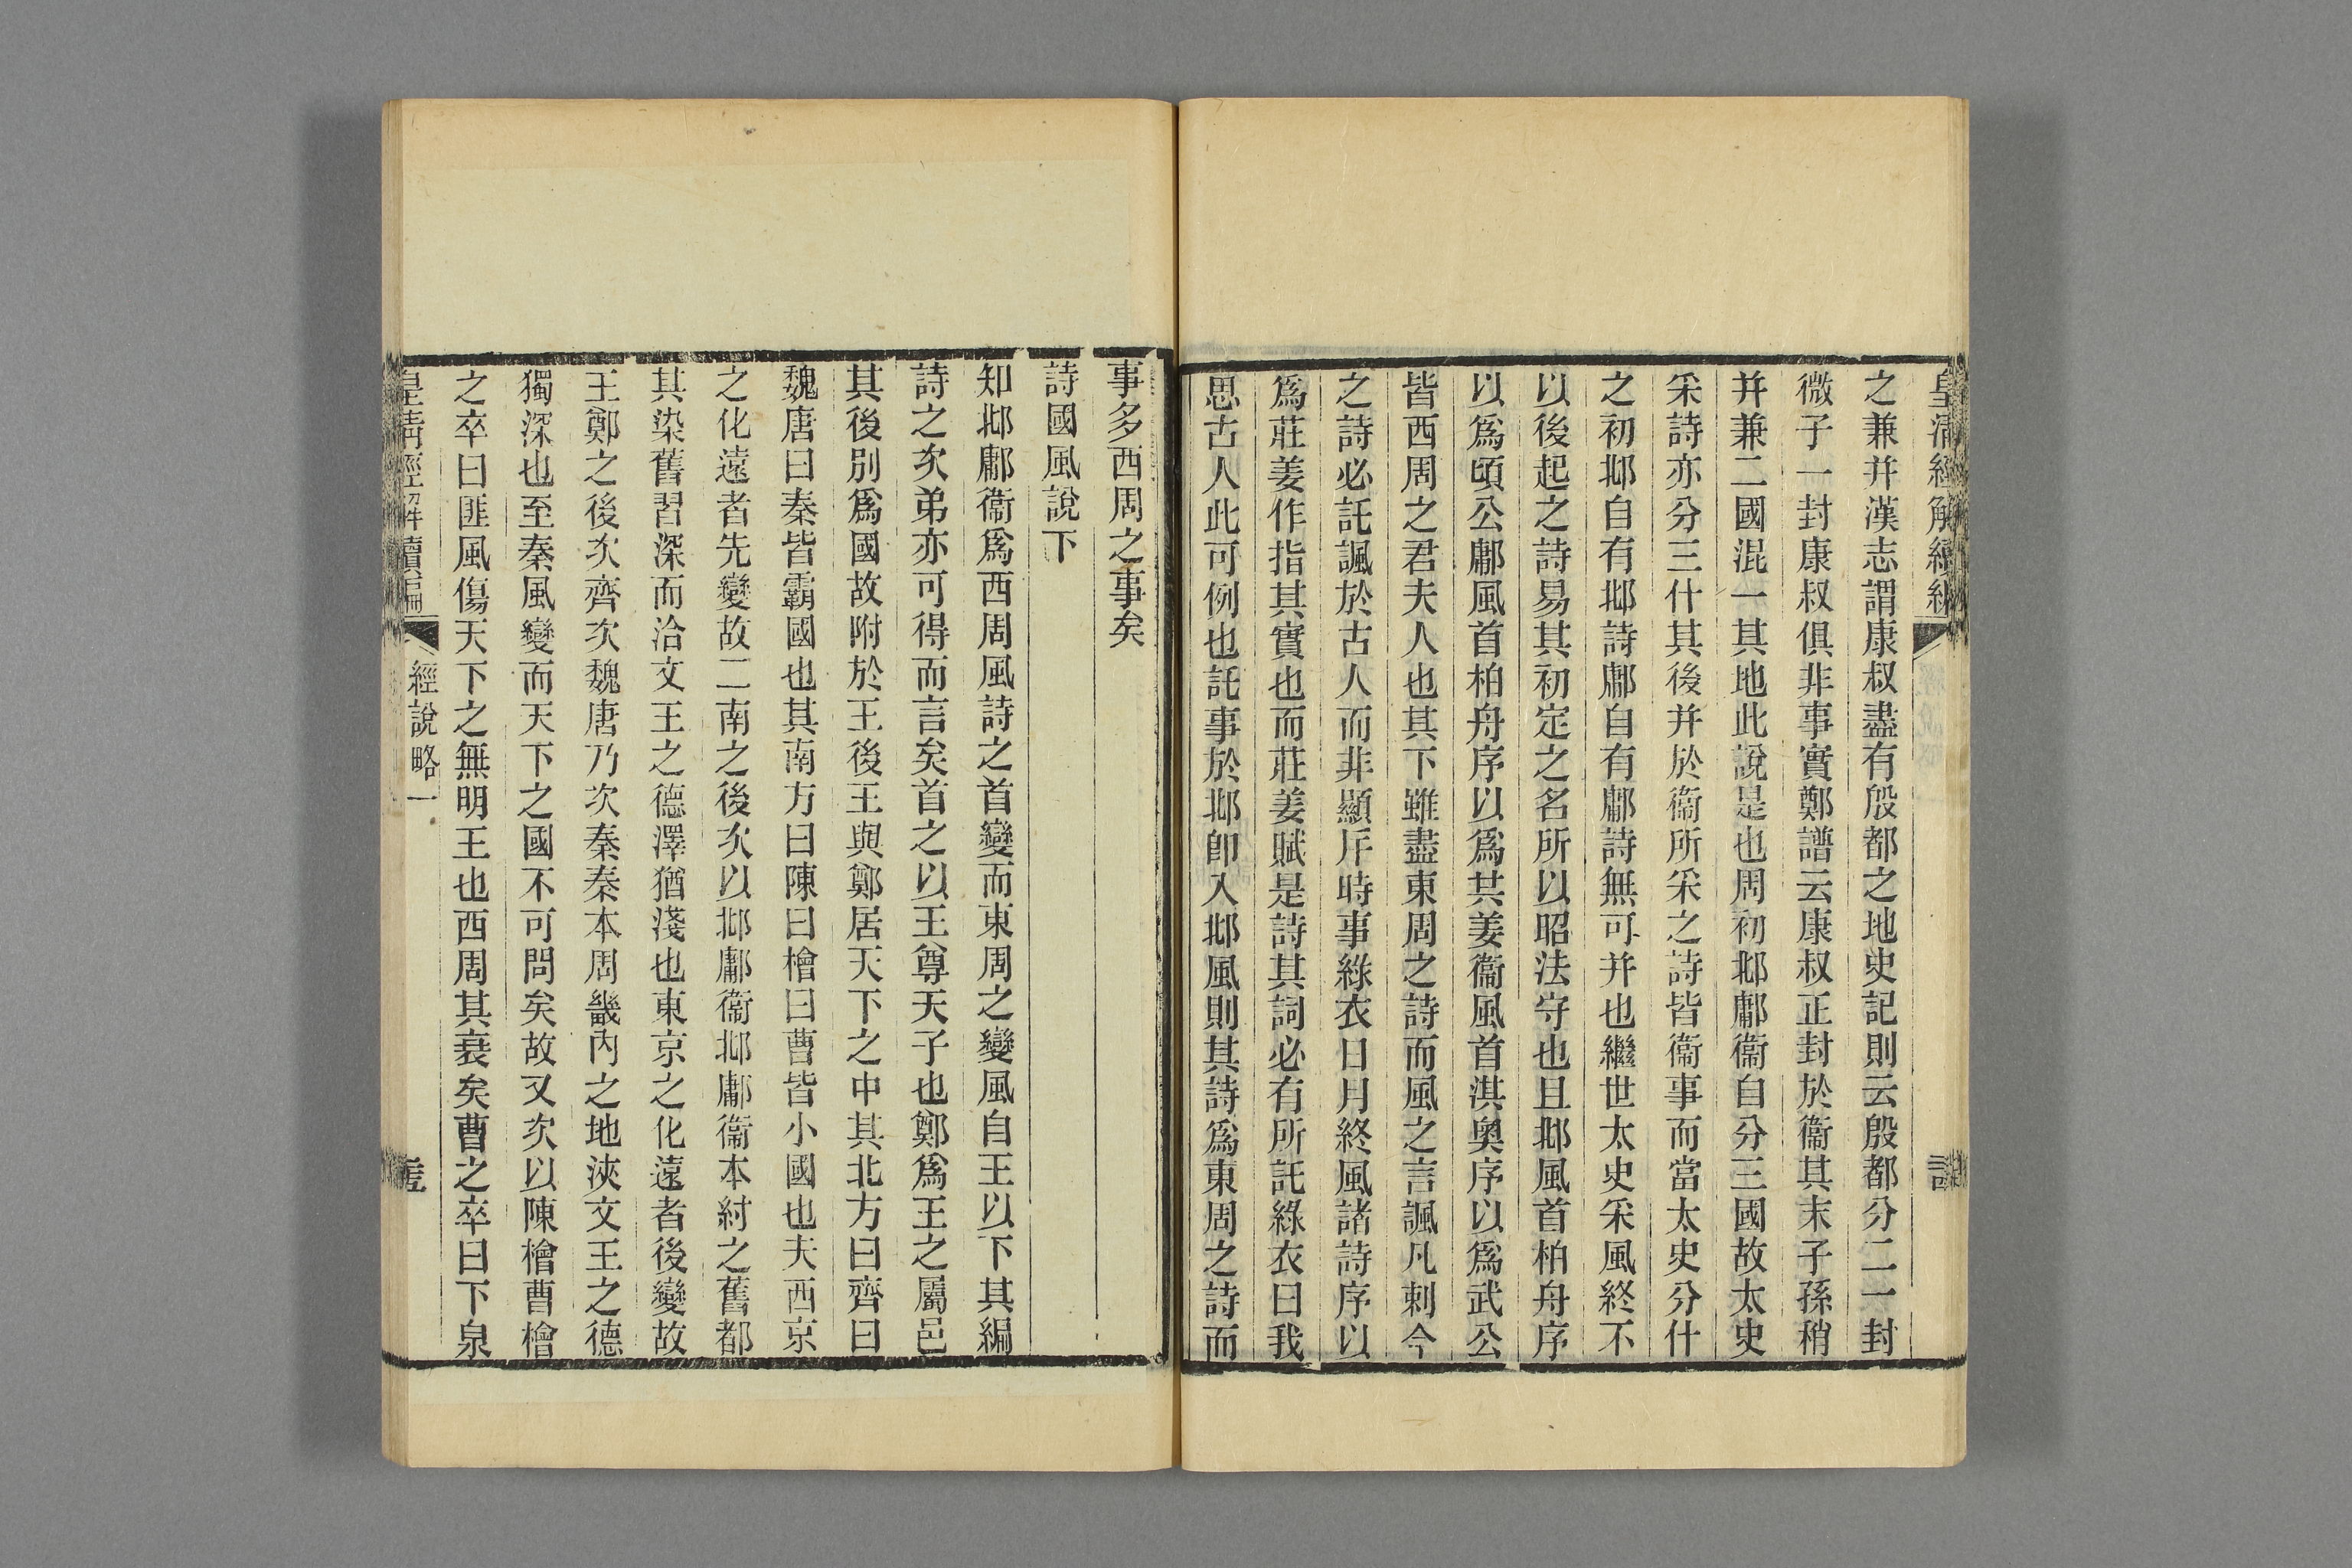 皇清經解續編
之兼并漢志謂康叔盡有殷都之地史記則云殷都分二一封
微子一封康叔俱非事實鄭譜云康叔正封於衞其末子孫稍
并兼二國混一其地此說是也周初邶鄘衞自分三國故太史
采詩亦分三什其後并於衞所采之詩皆衞事而當太史分什
之初邶自有邶詩鄘自有鄘詩無可并也繼世太史采風終不
以後起之詩易其初定之名所以昭法守也且邶風首柏舟序
以爲頃公鄘風首柏舟序以爲共姜衞風首淇奧序以爲武公
皆西周之君夫人也其下雖盡東周之詩而風之言諷凡刺今
之詩必託諷於古人而非顯斥時事綠衣日月終風諸詩序以
爲莊姜作指其實也而莊姜賦是詩其詞必有所託綠衣曰我
思古人此可例也託事於邶卽入邶風則其詩爲東周之詩而
事多西周之事矣
詩國風說下
知邶鄘衞爲西周風詩之首變而東周之變風自王以下其編
詩之次弟亦可得而言矣首之以王尊天子也鄭爲王之屬邑
其後別爲國故附於王後王與鄭居天下之中其北方曰齊曰
魏唐曰秦皆霸國也其南方曰陳曰檜曰曹皆小國也夫西京
之化遠者先變故二南之後次以邶鄘衞邶鄘衞本紂之舊都
其染舊習深而洽文王之德澤猶淺也東京之化遠者後變故
王鄭之後次齊次魏唐乃次秦秦本周畿內之地浹文王之德
獨深也至秦風變而天下之國不可問矣故又次以陳檜曹檜
之卒曰匪風傷天下之無明王也西周其衰矣曹之卒曰下泉
皇清經解續編
經說略一